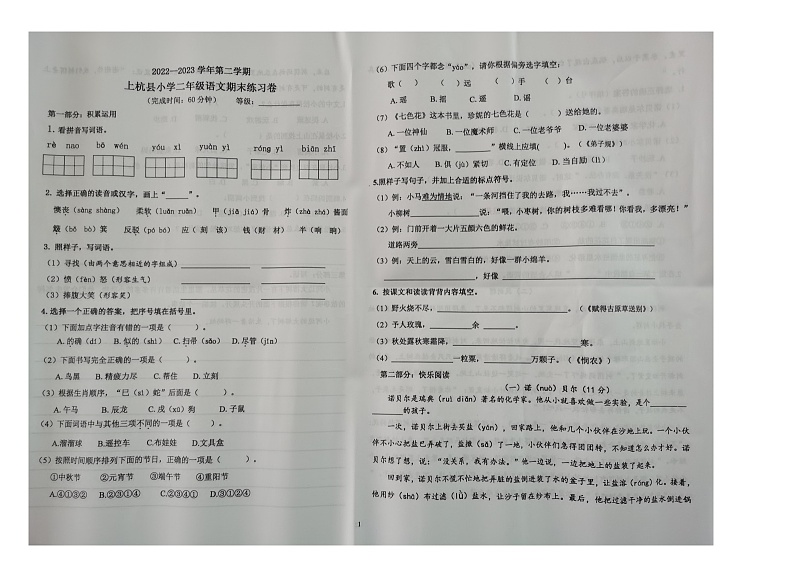 2022—2023 学年第二学期
上杭县小学二年级语文期末练习卷
(完成时间：60 分钟) 等级：________
第一部分：积累运用
1. 看拼音写词语。
rè nao bō wén yóu xì yuǎn yì róng yì biān zhī
2. 选择正确的读音或汉字，画上“______”。
懊丧（sàng shàng） 柔软（luǎn ruǎn） 甲（jiǎ jiá）骨 炸（zhà zhá）酱面
簸（bǒ bò）箕 反驳（pó bó） 应（ 刻 该 ） 钱（财 材 ） 半（晌 响）
3. 照样子，写词语。
（1）寻找（由两个意思相近的字组成）
（2）愤（fèn）怒（形容生气）
（3）捧腹大笑（形容笑）
4. 选择一个正确的答案，把序号填在括号里。
（1）下面加点字注音有错的一项是（ ）。
A. 的确（dí） B. 似的（shì） C. 扫帚（sǎo） D. 尽管（jǐn）
（2）下面书写完全正确的一项是（ ）。
A. 鸟黑 B. 精疲力尽 C. 帮住 D. 立刻
（3）根据生肖顺序，“巳（sì）蛇”后面是（ ）。
A. 午马 B. 辰龙 C. 戌（xū）狗 D. 子鼠
（4）下面词语中与其他三项不同的一项是（ ）。
A.溜溜球 B.遥控车 C.布娃娃 D.文具盒
（5）按照时间顺序排列下面的节日，正确的一项是（ ）。
①中秋节 ②元宵节 ③端午节 ④重阳节
A.④①③② B.②③①④ C.②③④① D.③①②④
（6）下面四个字都念“yáo”，请你根据偏旁选字填空：
歌（ ） （ ）远 （ ）手 （ ）台
A. 遥 B. 摇 C. 谣 D. 瑶
（7）《七色花》这本书里，珍妮的七色花是（ ）送给她的。
A. 一位神仙 B. 一位魔术师 C. 一位老爷爷 D. 一位老婆婆
（8）“置（zhì）冠服，________”横线上应填（ ）。（《弟子规》）
A. 不如人 B. 俱（jù）紧切 C. 有定位 D. 当自励（lì）
5.照样子写句子，并加上合适的标点符号。
（1）例：小马难为情地说：“一条河挡住了我的去路，我……我过不去”。
小柳树____________说：“喂，小枣树，你的树枝多难看哪！你看我，多漂亮！”
（2）例：门前开着一大片五颜六色的鲜花。
道路两旁
（3）例：天上的云，雪白雪白的，好像一群小绵羊。
，好像
6. 按课文和读读背背内容填空。
（1）野火烧不尽，____________。（《赋得古原草送别》）
（2）予人玫瑰，________余________。
（3）秋处露秋寒霜降，____________寒。
（4）____________一粒粟，________万颗子。（《悯农》）
第二部分：快乐阅读
（一）诺（nuò）贝尔（11 分）
诺贝尔是瑞典（ruì diǎn）著名的化学家。他从小就喜欢做一些实验，是个________
________的孩子。
一次，诺贝尔上街去买盐（yán），回家路上，他和几个小伙伴在沙地上玩。一个小伙伴
不小心把盐巴弄破了，盐撒（sǎ）了一地，小伙伴们急得团团转，不知道怎么办才好。诺
贝尔想了想，说：“没关系，我有办法。”他一边说，一边把地上的盐装了起来。
回到家，诺贝尔不慌不忙地把弄脏的盐倒进装了水的盒子里，让盐溶（róng）化。接着，
他用纱（shā）布过滤（lǜ）盐水，让沙子留在纱布上。最后，他把过滤干净的盐水倒进锅
1